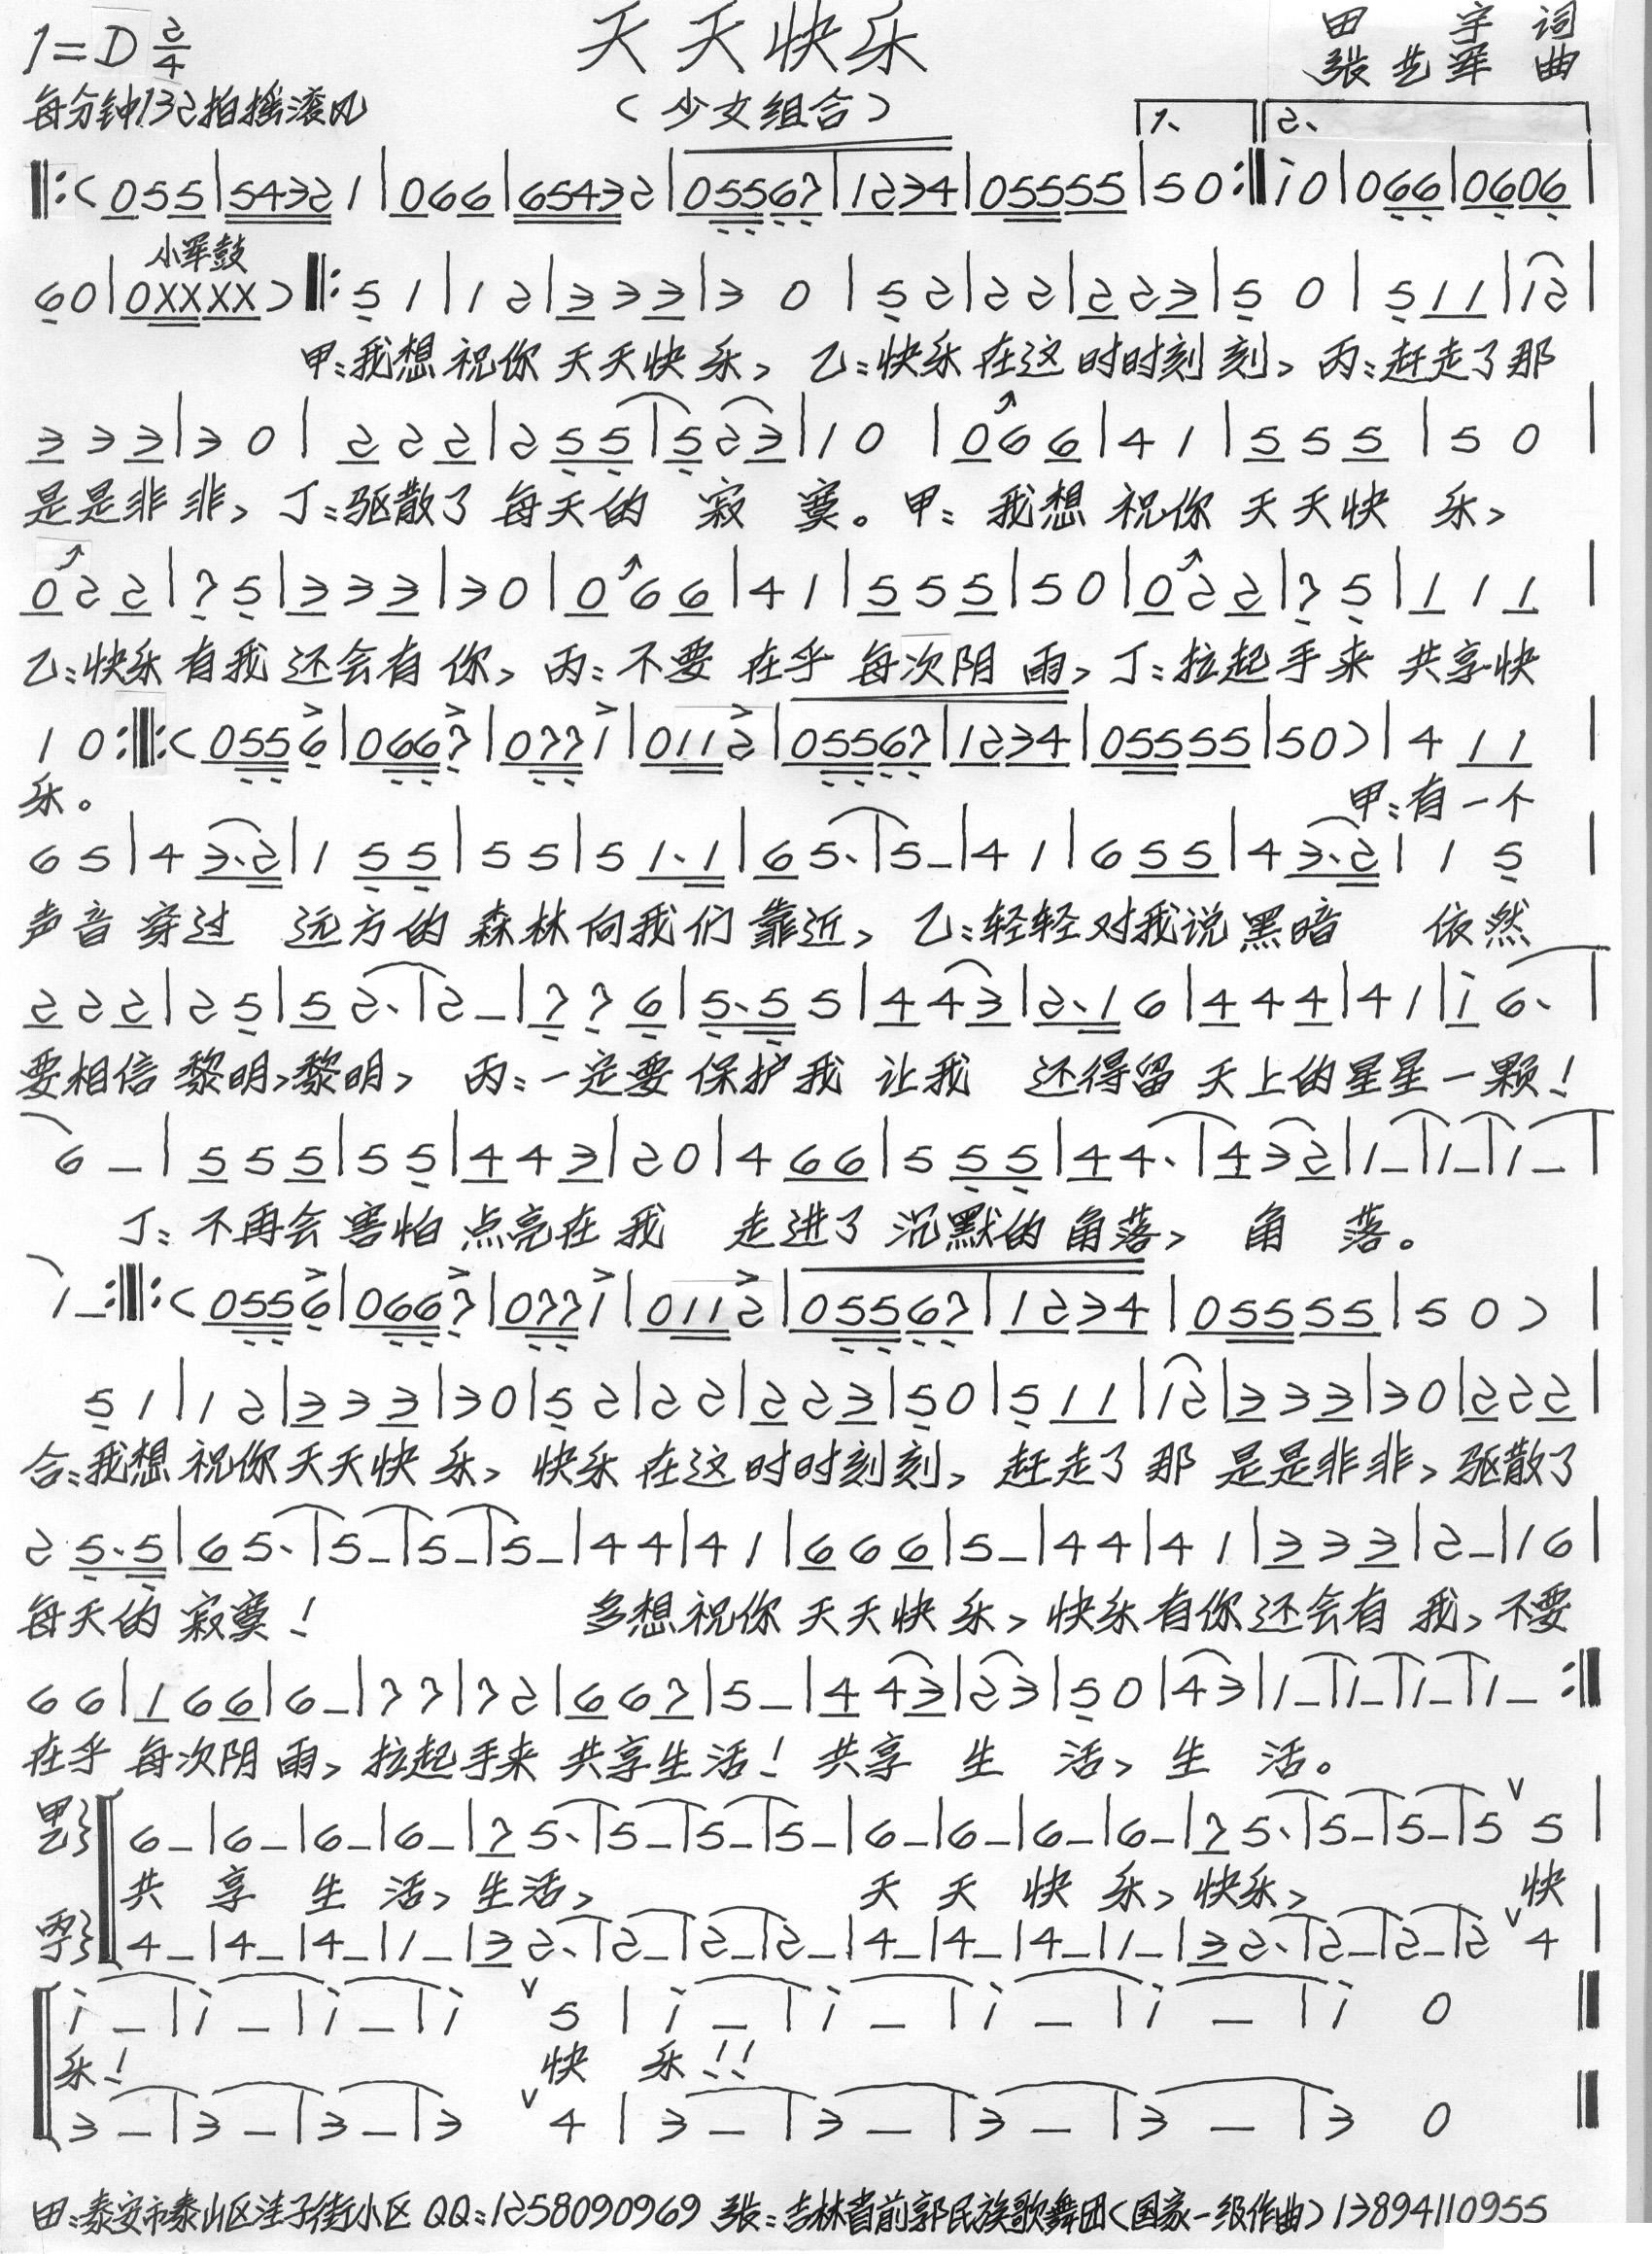 天天快乐
1=D 2/4
田 宇 词
张艺军 曲
每分钟132拍摇滚风
(少女组合)
1、 2、
‖:(055|54321|066|65432|05567|1234|05555|50:‖i0|066|0606|
小军鼓
60|0XXXX)‖:51|12|333|30|52|22|223|50|511|12|
甲:我想祝你天天快乐,乙:快乐在这时时刻刻,丙:赶走了那
333|30|222|255|523|10|066|41|555|50|
是是非非,丁:驱散了每天的寂寞。甲:我想祝你天天快乐,
022|75|333|30|066|41|555|50|022|75|111|
乙:快乐有我还会有你,丙:不要在乎每次阴雨,丁:拉起手来共享快
10:‖:(0556|0667|0771|0112|05567|1234|05555|50)|411|
乐。 甲:有一个
65|43.2|155|55|51.1|65.|5-|41|655|43.2|15|
声音穿过远方的森林向我们靠近,乙:轻轻对我说黑暗依然
222|25|52.|2-|776|5.55|443|2.16|444|41|i6.|
要相信黎明,黎明,丙:一定要保护我让我还得留天上的星星一颗!
6-|555|55|443|20|466|555|44.|432|1-|1-|1-|
丁:不再会害怕点亮在我走进了沉默的角落,角落。
1-:‖:(0556|0667|0771|0112|05567|1234|05555|50)|
51|12|333|30|52|22|223|50|511|12|333|30|222|
合:我想祝你天天快乐,快乐在这时时刻刻,赶走了那是是非非,驱散了
25.5|65.|5-|5-|5-|44|41|666|5-|44|41|333|2-|16|
每天的寂寞! 多想祝你天天快乐,快乐有你还会有我,不要
66|166|6-|77|72|667|5-|443|23|50|43|1-|1-|1-|1-:‖
在乎每次阴雨,拉起手来共享生活!共享生活,生活。
甲乙}6-|6-|6-|6-|75.|5-|5-|5-|6-|6-|6-|6-|75.|5-|5-|5V5|
共享生活,生活, 天天快乐,快乐, 快
丙丁}4-|4-|4-|1-|32.|2-|2-|2-|4-|4-|4-|1-|32.|2-|2-|2V4|
i-|i-|i-|iV5|i-|i-|i-|i-|i0‖
乐! 快乐!!
3-|3-|3-|3V4|3-|3-|3-|3-|30‖
田:泰安市泰山区洼子街小区QQ:1258090969 张:吉林省前郭民族歌舞团(国家一级作曲)13894110955